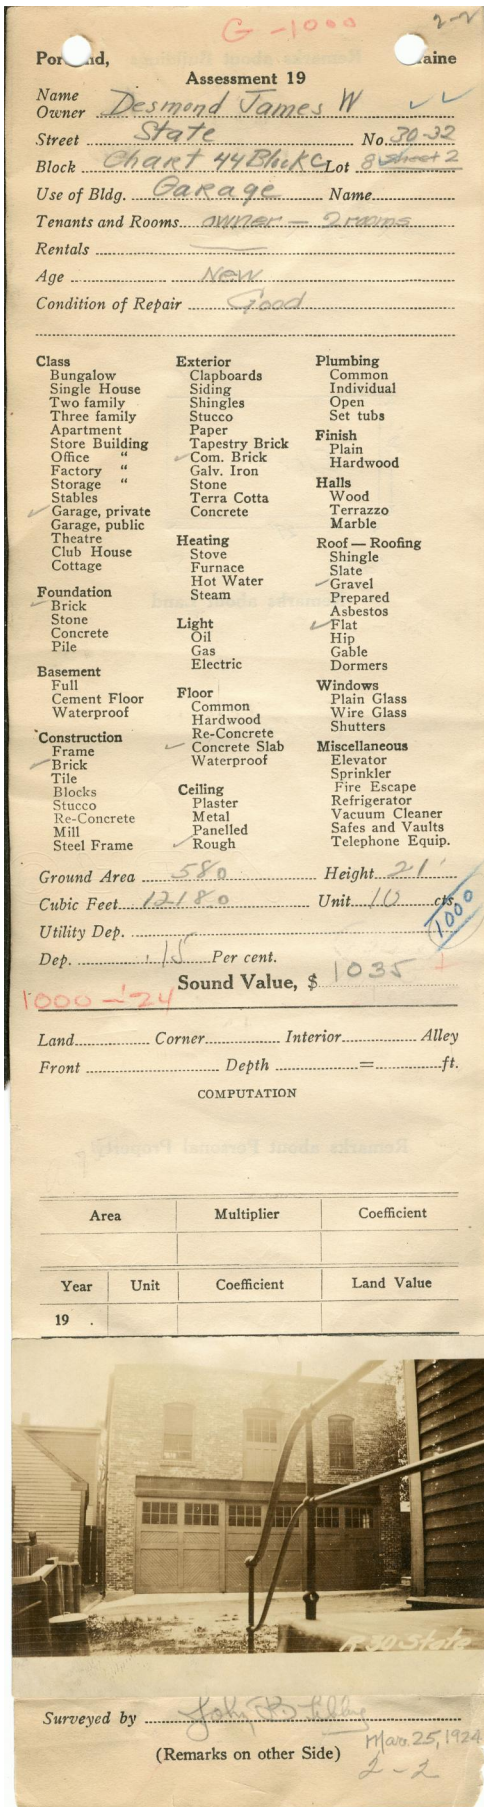 G-1000
2-2
Portland, Maine
Assessment 19
Name
Owner Desmond James W
Street State No. 30-32
Block Chart 44 Block C Lot 8 Street 2
Use of Bldg. Garage Name
Tenants and Rooms owner — 2 rooms
Rentals
Age New
Condition of Repair Good
Class
Bungalow
Single House
Two family
Three family
Apartment
Store Building
Office "
Factory "
Storage "
Stables
Garage, private
Garage, public
Theatre
Club House
Cottage
Foundation
Brick
Stone
Concrete
Pile
Basement
Full
Cement Floor
Waterproof
Construction
Frame
Brick
Tile
Blocks
Stucco
Re-Concrete
Mill
Steel Frame
Exterior
Clapboards
Siding
Shingles
Stucco
Paper
Tapestry Brick
Com. Brick
Galv. Iron
Stone
Terra Cotta
Concrete
Heating
Stove
Furnace
Hot Water
Steam
Light
Oil
Gas
Electric
Floor
Common
Hardwood
Re-Concrete
Concrete Slab
Waterproof
Ceiling
Plaster
Metal
Panelled
Rough
Plumbing
Common
Individual
Open
Set tubs
Finish
Plain
Hardwood
Halls
Wood
Terrazzo
Marble
Roof — Roofing
Shingle
Slate
Gravel
Prepared
Asbestos
Flat
Hip
Gable
Dormers
Windows
Plain Glass
Wire Glass
Shutters
Miscellaneous
Elevator
Sprinkler
Fire Escape
Refrigerator
Vacuum Cleaner
Safes and Vaults
Telephone Equip.
Ground Area 580 Height 21'
Cubic Feet 12180 Unit 10 cts.
1000
Utility Dep.
Dep. .15 Per cent.
Sound Value, $ 1035 +
1000-'24
Land Corner Interior Alley
Front Depth = ft.
COMPUTATION
Area Multiplier Coefficient
Year Unit Coefficient Land Value
19 .
R 30 State
Surveyed by John B Libby
Mar. 25, 1924
(Remarks on other Side)
2-2